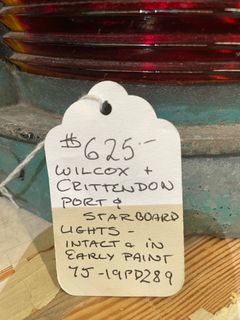 $625-
WILCOX +
CRITTENDON
PORT &
STARBOARD
LIGHTS -
INTACT & IN
EARLY PAINT
75-19PD289